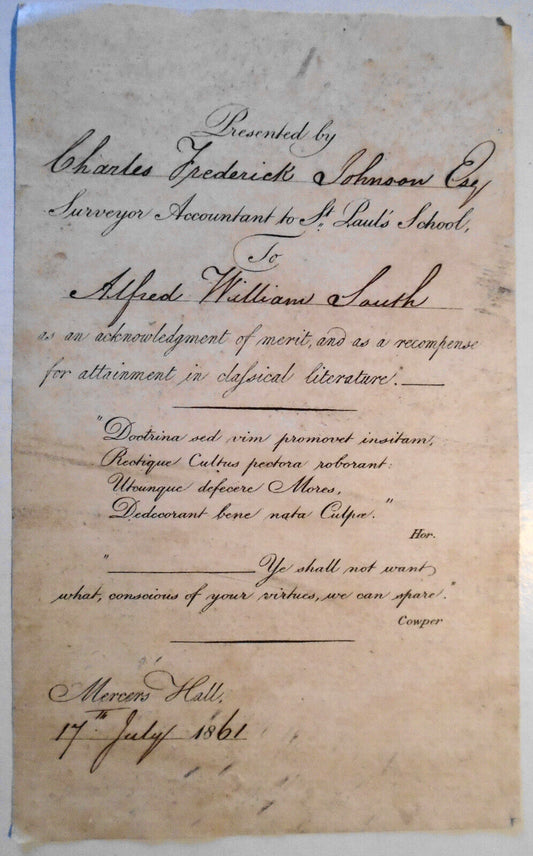 Presented by
Charles Frederick Johnson Esq
Surveyor Accountant to St. Paul's School,
To
Alfred William South
as an acknowledgment of merit, and as a recompense
for attainment in classical literature.
"Doctrina sed vim promovet insitam,
Rectique Cultus pectora roborant:
Utcunque defecere Mores,
Dedecorant bene nata Culpæ."
Hor.
" Ye shall not want
what, conscious of your virtues, we can spare."
Cowper
Mercers Hall,
17th July 1861